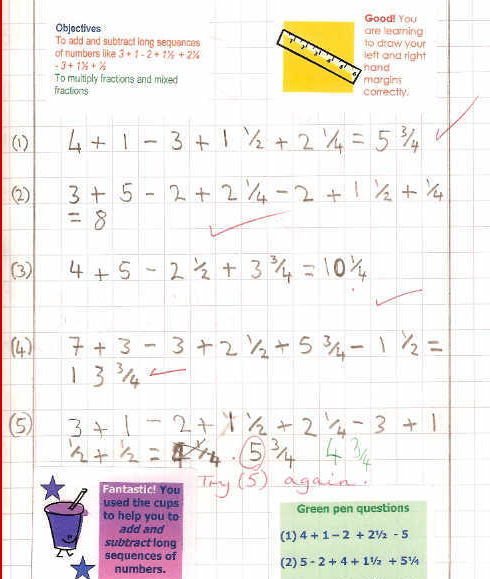 Objectives
To add and subtract long sequences
of numbers like 3 + 1 - 2 + 1½ + 2¼
- 3 + 1½ + ½
To multiply fractions and mixed
fractions
Good! You
are learning
to draw your
left and right
hand
margins
correctly.
(1) 4 + 1 - 3 + 1 ½ + 2 ¼ = 5 ¾
(2) 3 + 5 - 2 + 2 ¼ - 2 + 1 ½ + ¼
= 8
(3) 4 + 5 - 2 ½ + 3 ¾ = 10 ¼
(4) 7 + 3 - 3 + 2 ½ + 5 ¾ - 1 ½ =
13 ¾
(5) 3 + 1 - 2 + 1 ½ + 2 ¼ - 3 + 1
½ + ½ = 5 ¾ 4 ¾
Try (5) again.
Fantastic! You
used the cups
to help you to
add and
subtract long
sequences of
numbers.
Green pen questions
(1) 4 + 1 – 2 + 2½ - 5
(2) 5 - 2 + 4 + 1½ + 5¼